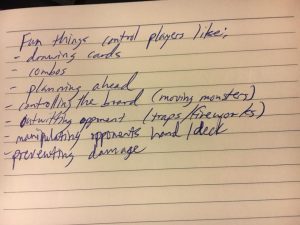 Fun things control players like:
- drawing cards
- combos
- planning ahead
- controlling the board (moving monsters)
- outwitting opponent (traps/fireworks)
- manipulating opponents hand/deck
- preventing damage